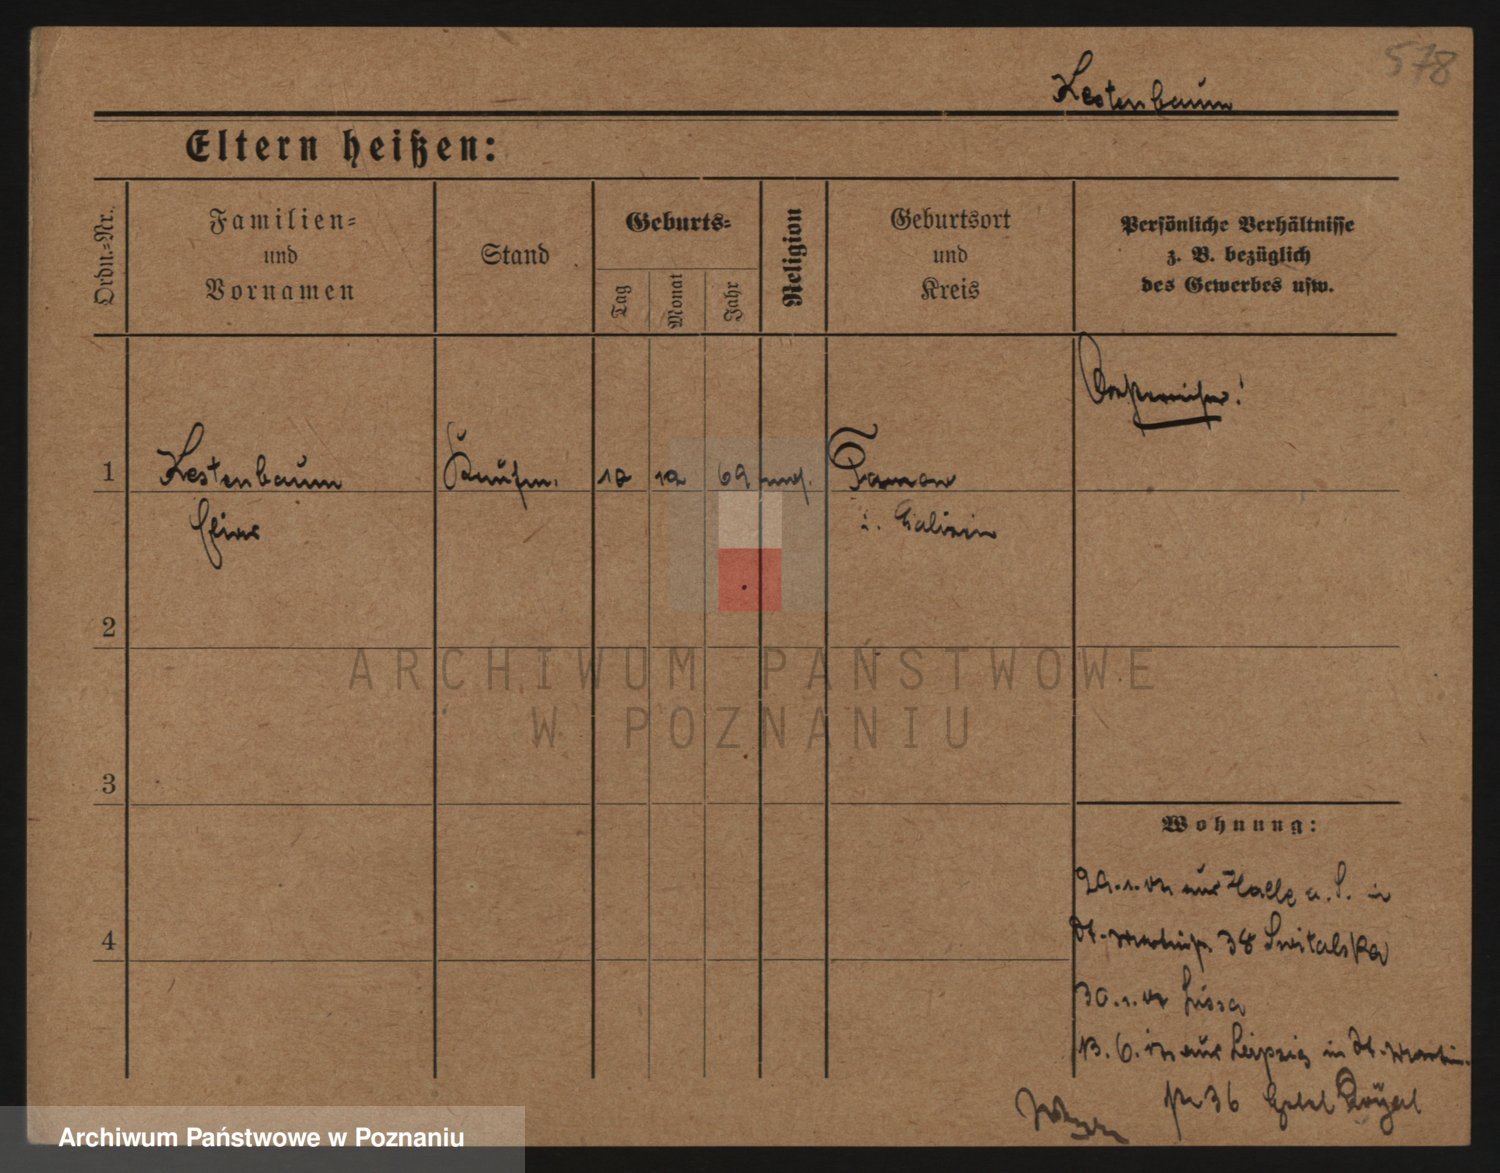 578
Kestenbaum
Eltern heißen:
Ordn.-Nr.
Familien-
und
Vornamen
Stand
Geburts-
Tag
Monat
Jahr
Religion
Geburtsort
und
Kreis
Persönliche Verhältnisse
z. B. bezüglich
des Gewerbes usw.
1
Kestenbaum
Kaufm.
69
Tarnow
i. Galizien
2
3
4
Wohnung:
aus Halle a. S. in
St. Martinstr. 38 Switalska
30. Lissa
13. 6. aus Leipzig in St. Martin-
str 36 Hotel Royal
ARCHIWUM PAŃSTWOWE
W POZNANIU
Archiwum Państwowe w Poznaniu